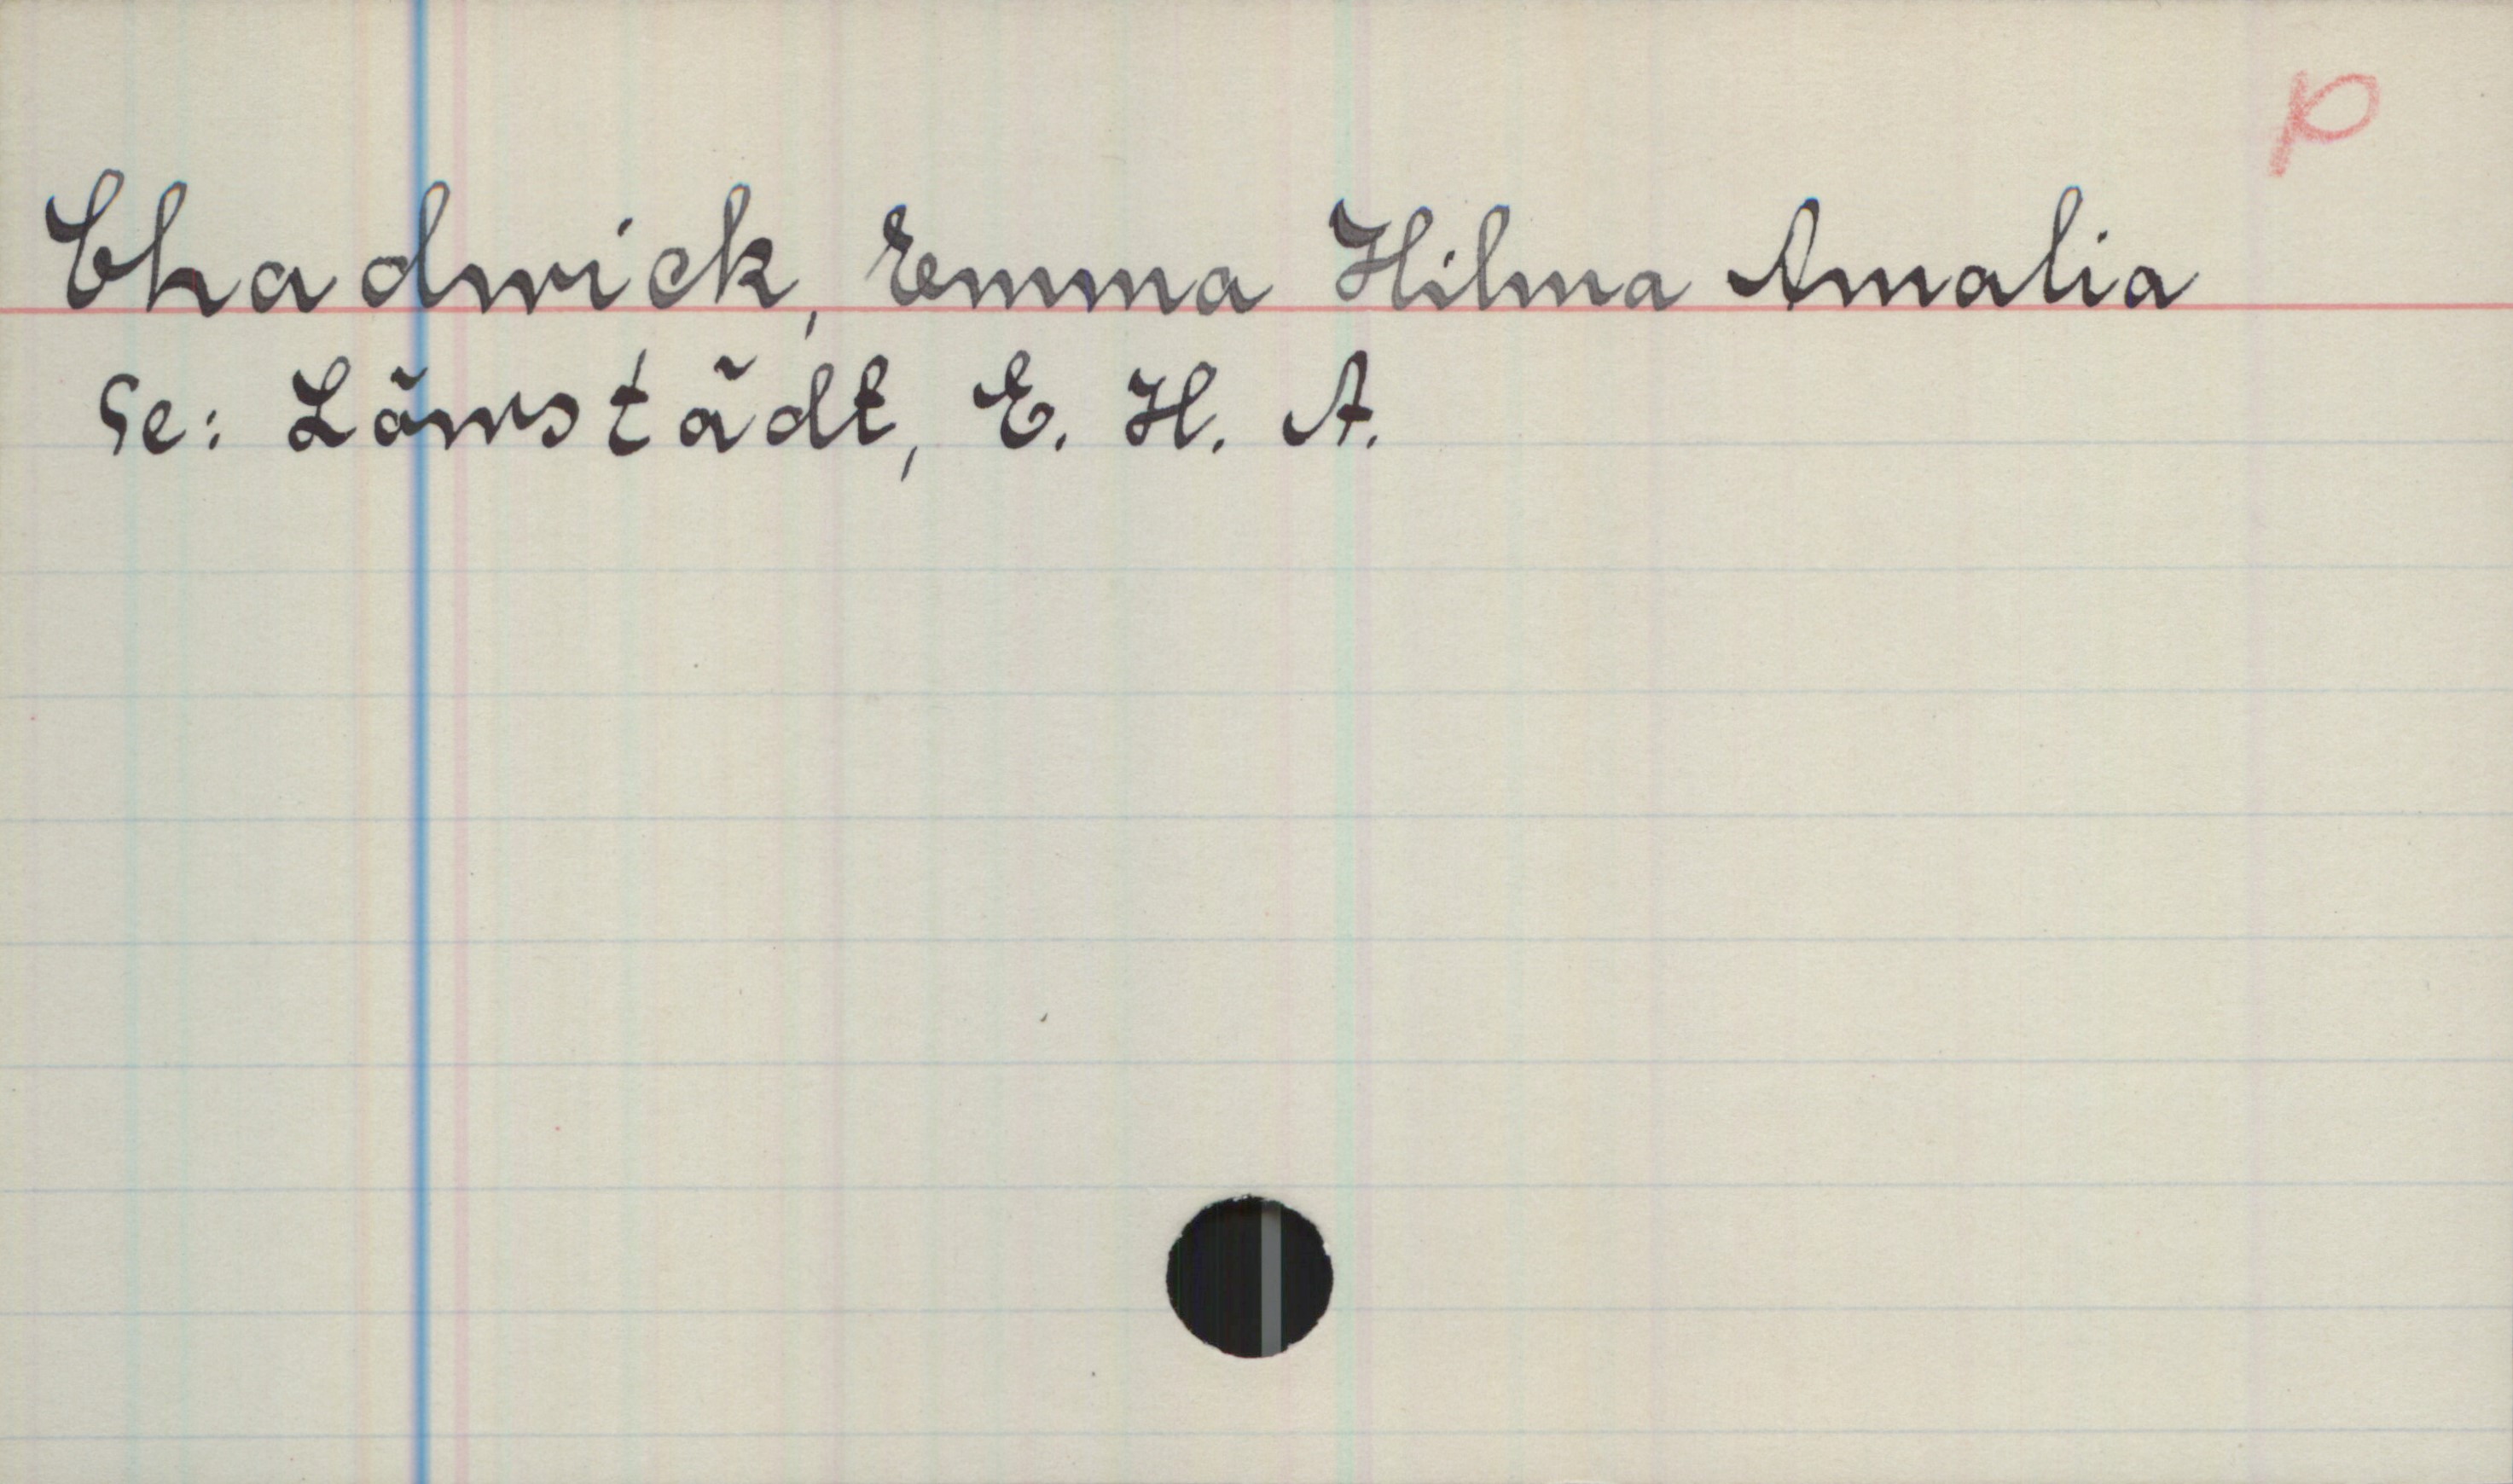 p
Chadwick, Emma Hilma Amalia
Se: Löwstädt, E. H. A.